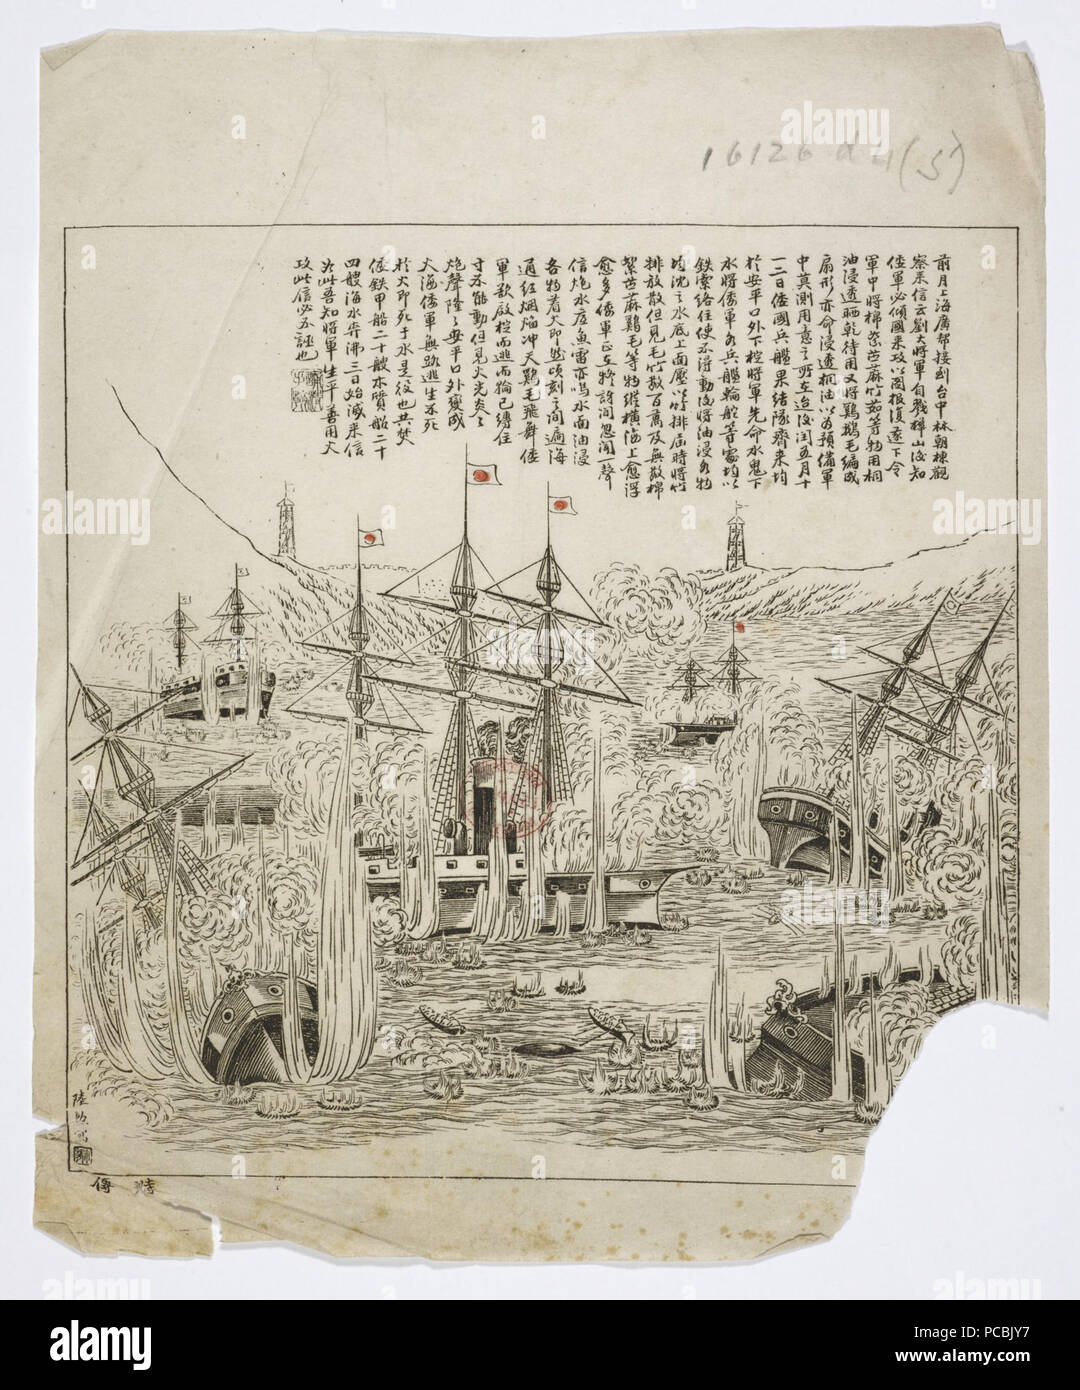 16126 d 4 (5)
前月上海廣幫接到台中林朝棟觀
察来信云劉大將軍自戰樺山後知
倭軍必傾國来攻以圖報復遂下令
軍中將棉絮苎麻竹茹等物用桐
油浸透晒乾待用又將鷄鵝毛編成
扇形亦命浸透桐油以为預備軍
中莫測用意之所在迨後闰五月十
一二日倭國兵艦果結隊齊来均
於安平口外下椗將軍先命水鬼下
水將倭軍各兵艦輪舵等處均以
鉄索絡住使不得動後將油浸各物
均沈之水底上面壓以竹排届時將竹
排放散但見毛竹數百萬及無數棉
絮苎麻鷄毛等物縱橫海上愈浮
愈多倭軍正在猜訝间忽闻一聲
信炮水底魚雷亦鳴水面油浸
各物着火即燃頃刻之间遍海
通红烟焰冲天鷄毛飛舞倭
軍欲啟椗而逃而輪已縛住
寸不能動但見火光炎々
炮聲隆々安平口外變成
火海倭軍無路逃生不死
於火即死于水是役也共焚
倭鉄甲船二十艘木質船二十
四艘海水沸三日始滅来信
如此吾知將軍生平善用火
攻此信必不誣也
alamy
alamy stock photo
PCBJY7
www.alamy.com